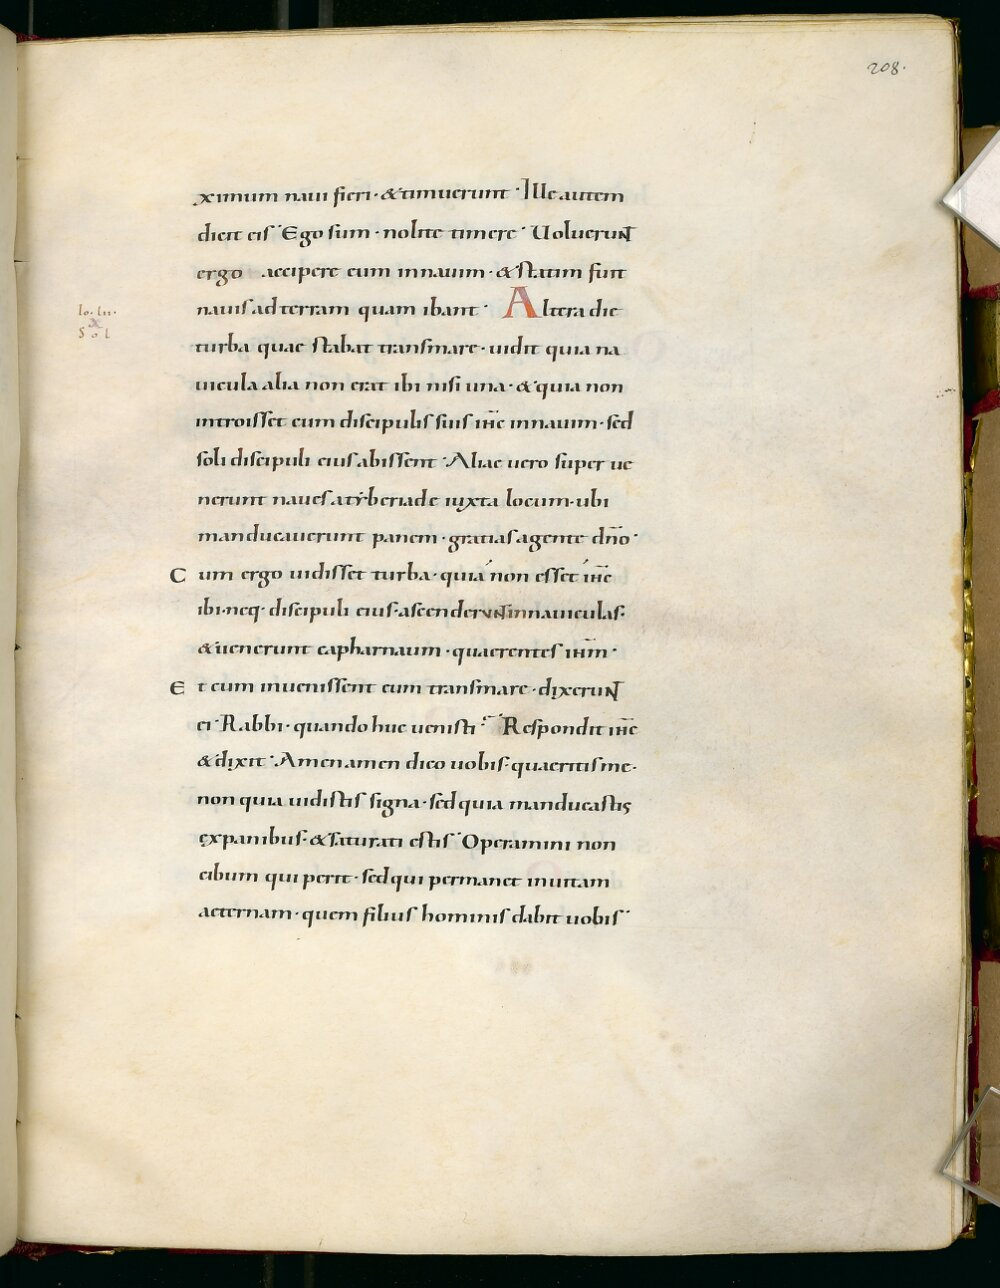 208.
ximum naui fieri · & timuerunt · Ille autem
dicit eis · Ego sum · nolite timere · Uoluerunt
ergo accipere eum in nauim · & statim fuit
nauis ad terram quam ibant · Altera die
Io. lii.
X
Sol
turba quae stabat trans mare · uidit quia na
uicula alia non erat ibi nisi una · & quia non
introisset cum discipulis suis ihc in nauim · sed
soli discipuli eius abissent · Aliae uero super ue
nerunt naues a tyberiade iuxta locum · ubi
manducauerunt panem · gratias agente dno ·
Cum ergo uidisset turba · quia non esset ihc
ibi · neq· discipuli eius · ascenderunt in nauiculas ·
& uenerunt capharnaum · quaerentes ihm ·
Et cum inuenissent eum trans mare · dixerunt
ei · Rabbi · quando huc uenisti · Respondit ihc
& dixit · Amen amen dico uobis · quaeritis me ·
non quia uidistis signa · sed quia manducastis
ex panibus · & saturati estis · Operamini non
cibum qui perit · sed qui permanet in uitam
aeternam · quem filius hominis dabit uobis ·